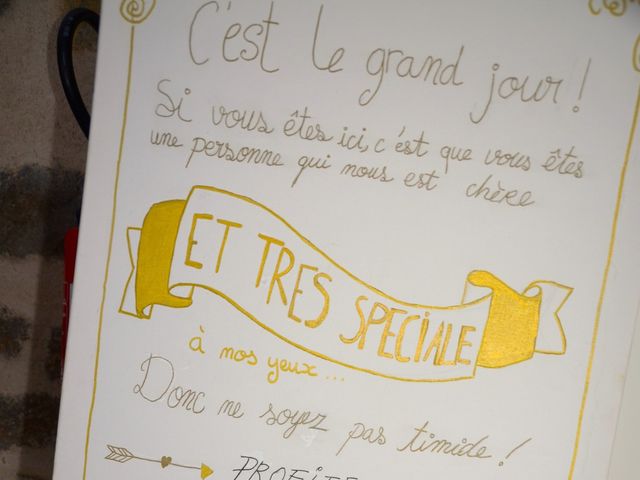 C'est le grand jour !
Si vous êtes ici, c'est que vous êtes
une personne qui nous est chère
ET TRES SPECIALE
à nos yeux...
Donc ne soyez pas timide !